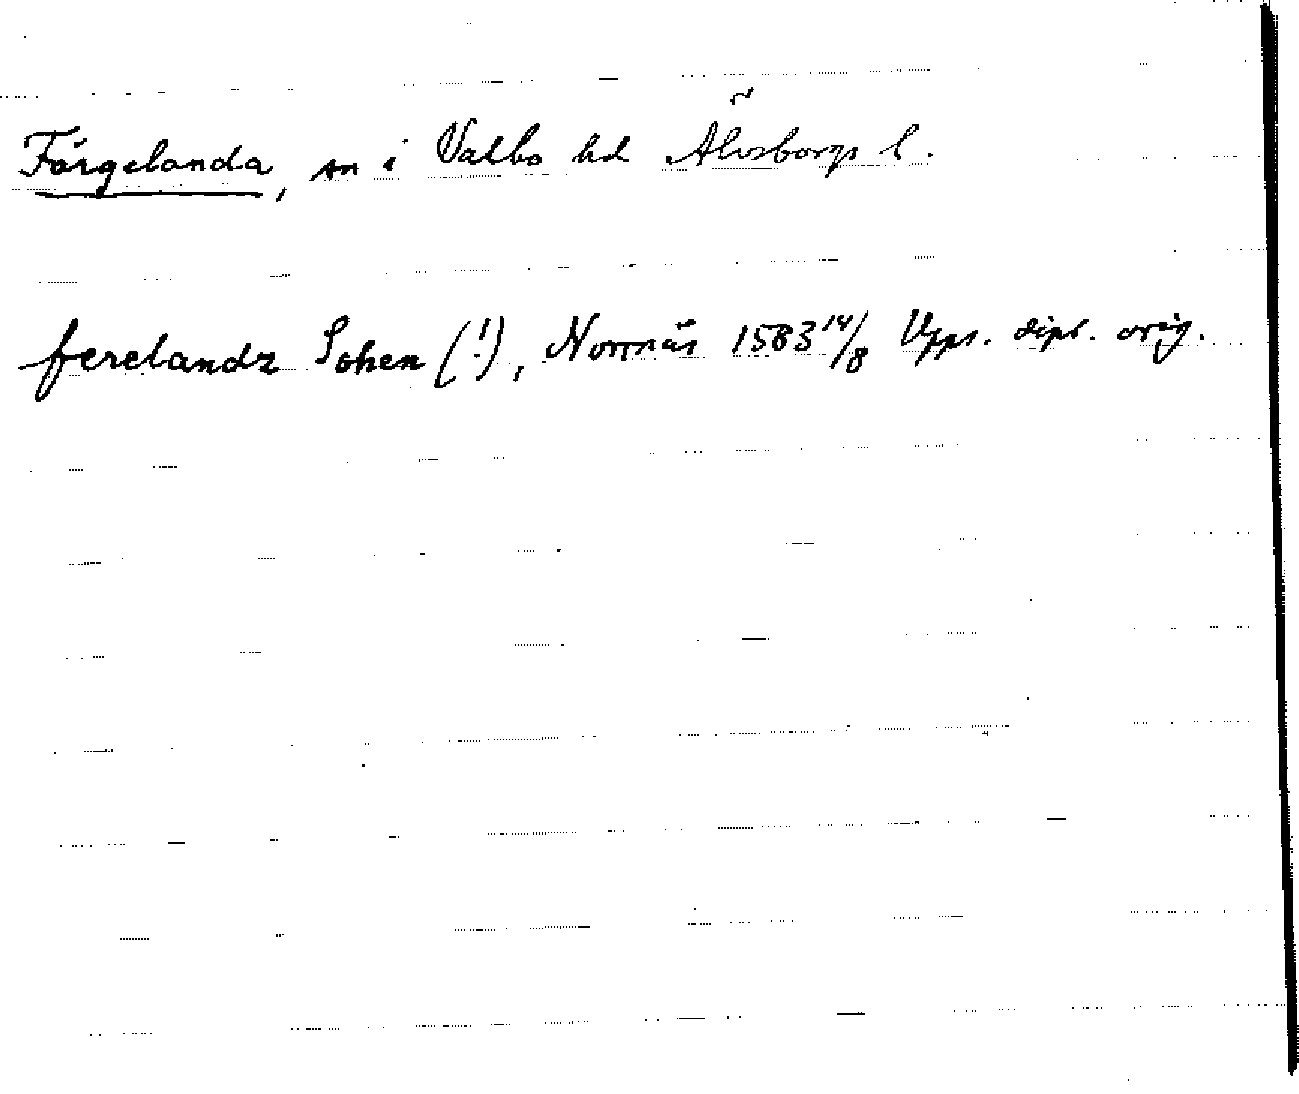 Färgelanda, sn i Valbo hd Älvsborgs l.
ferelandz Sohen (!), Norrnäs 1583 14/8 Upps. dipl. orig.